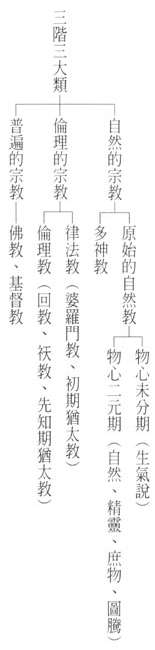 三階三大類
自然的宗教
原始的自然教
物心未分期（生氣說）
物心二元期（自然、精靈、庶物、圖騰）
多神教
倫理的宗教
律法教（婆羅門教、初期猶太教）
倫理教（回教、祆教、先知期猶太教）
普遍的宗教
佛教、基督教